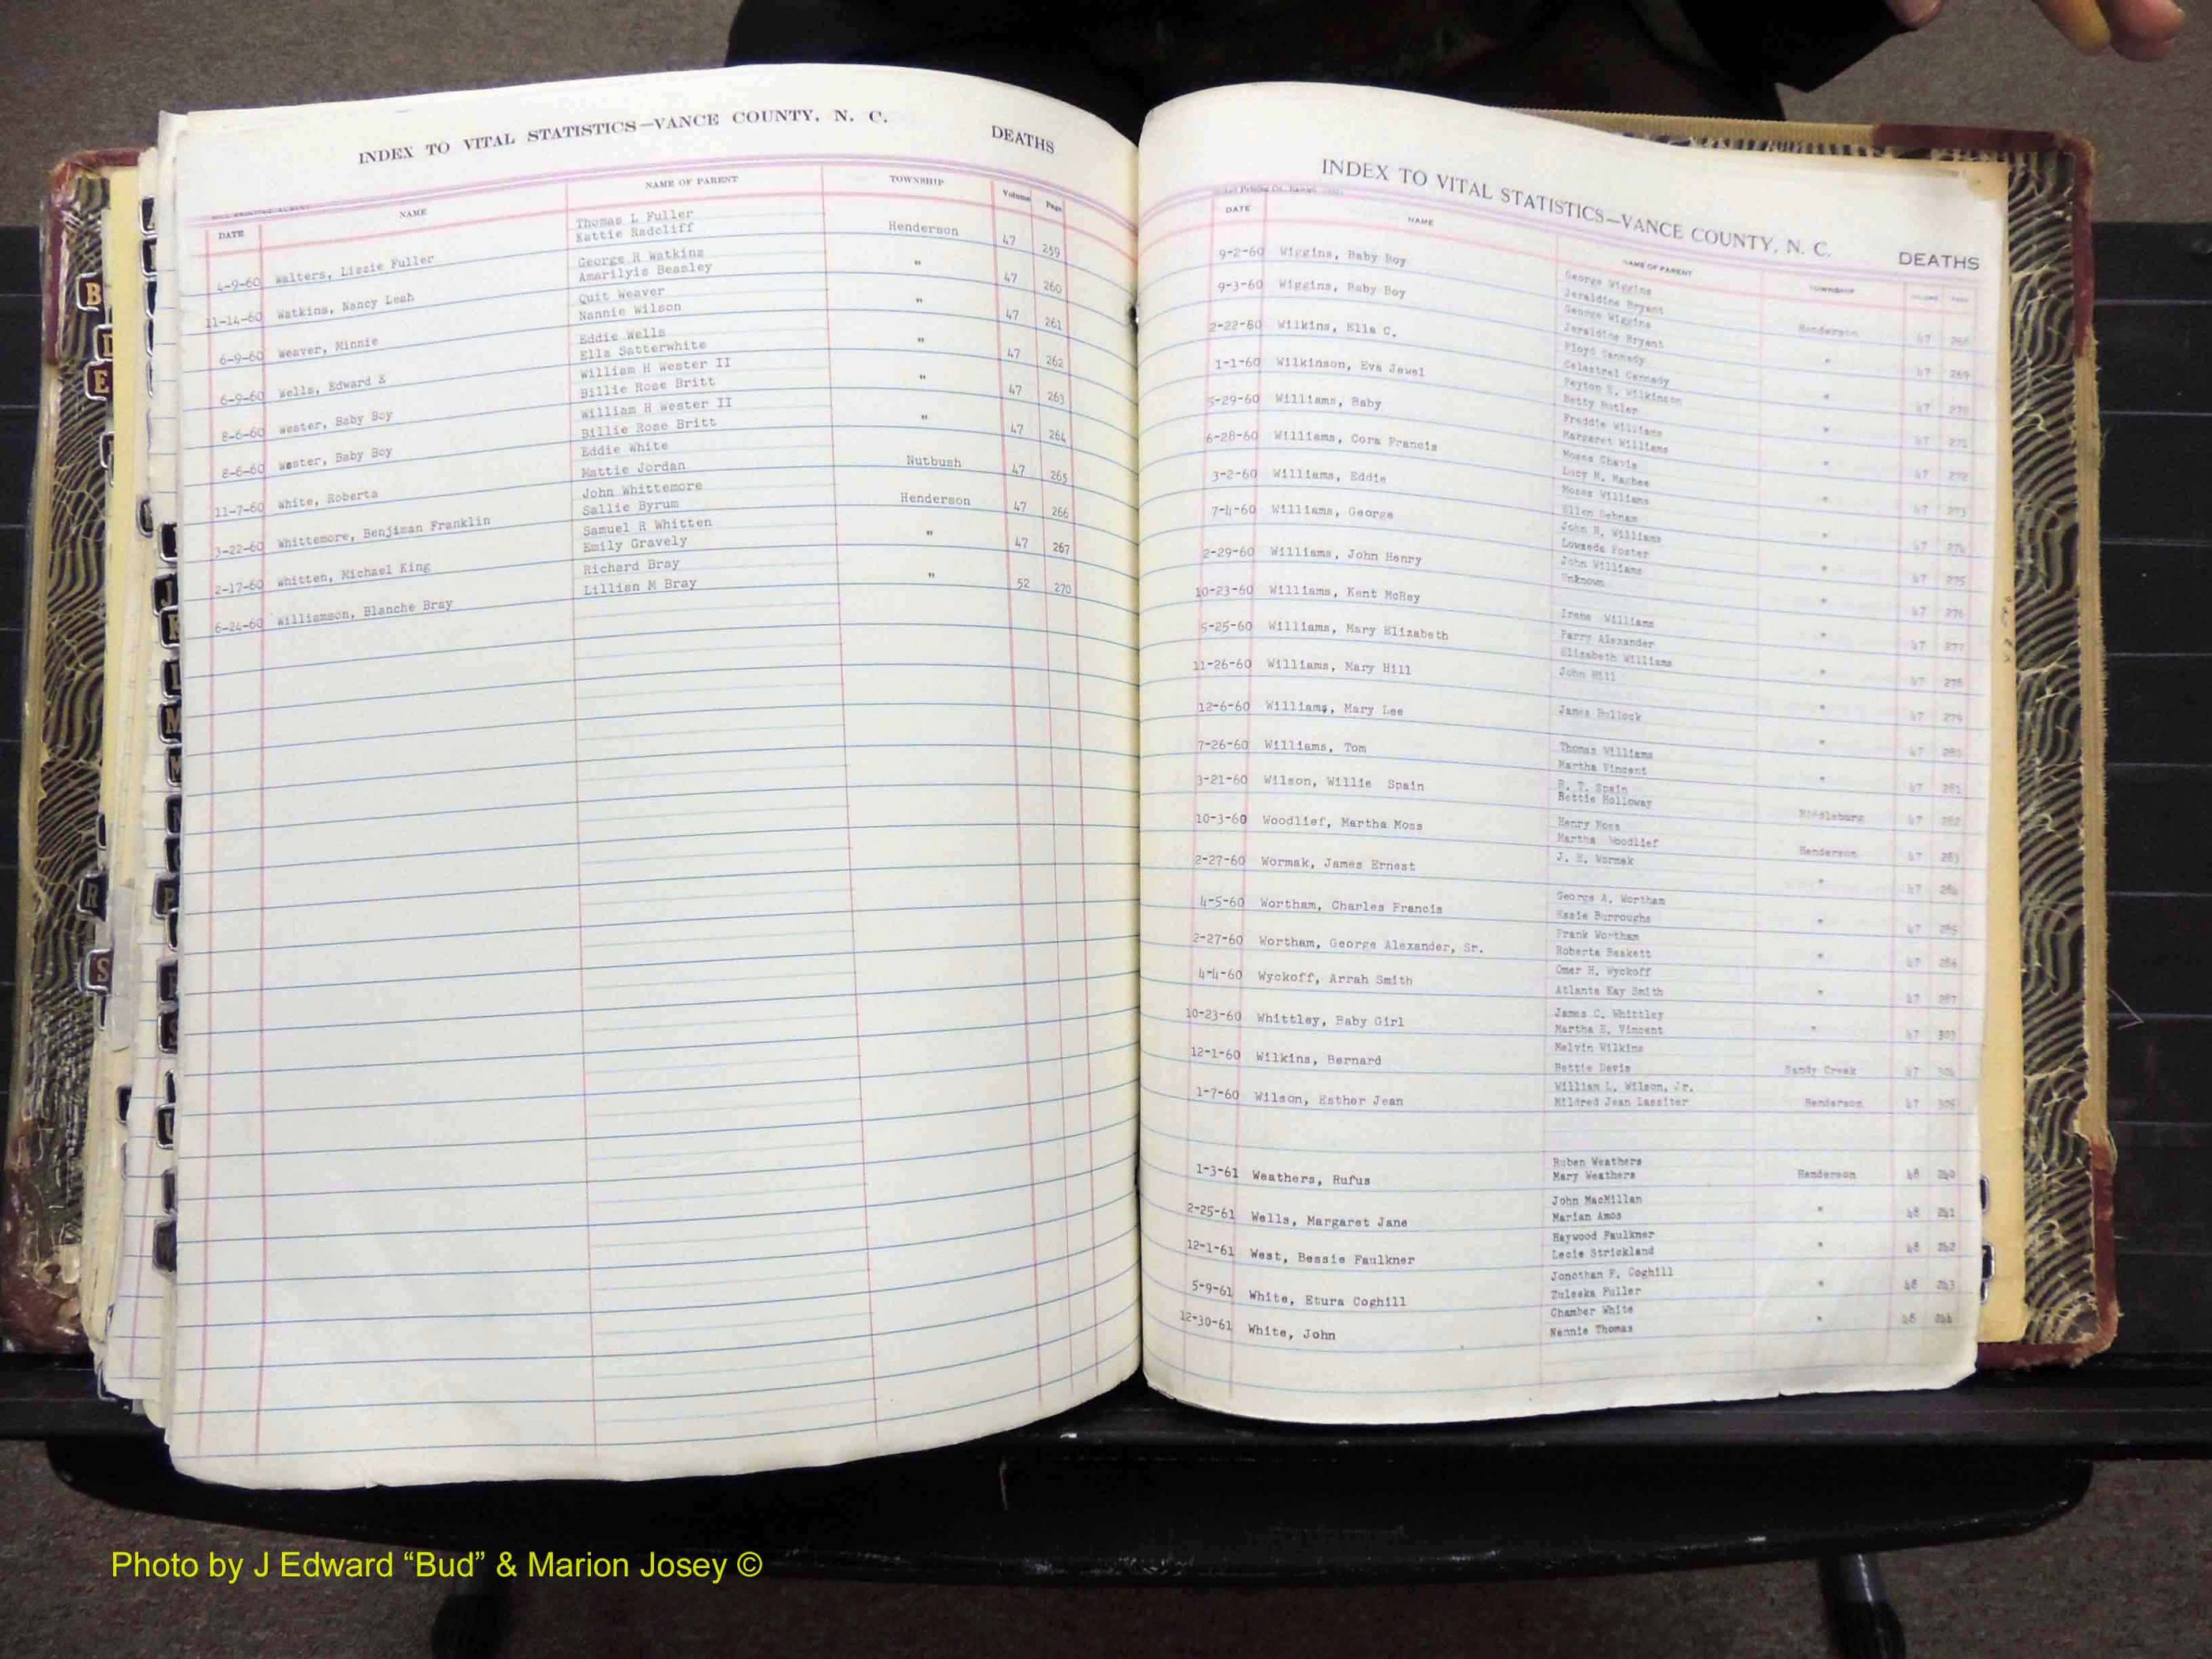 INDEX TO VITAL STATISTICS—VANCE COUNTY, N. C. DEATHS
DATE NAME NAME OF PARENT TOWNSHIP Volume Page
4-9-60 Walters, Lizzie Fuller Thomas L Fuller Henderson 47 259
Kattie Radcliff
11-14-60 Watkins, Nancy Leah George R Watkins " 47 260
Amarilyis Beasley
6-9-60 Weaver, Minnie Quit Weaver " 47 261
Nannie Wilson
6-9-60 Wells, Edward E Eddie Wells " 47 262
Ella Satterwhite
8-6-60 Wester, Baby Boy William H Wester II " 47 263
Billie Rose Britt
8-6-60 Wester, Baby Boy William H Wester II " 47 264
Billie Rose Britt
11-7-60 White, Roberta Eddie White Nutbush 47 265
Mattie Jordan
3-22-60 Whittemore, Benjiman Franklin John Whittemore Henderson 47 266
Sallie Byrum
2-17-60 Whitten, Michael King Samuel R Whitten " 47 267
Emily Gravely
6-24-60 Williamson, Blanche Bray Richard Bray " 52 270
Lillian M Bray
INDEX TO VITAL STATISTICS—VANCE COUNTY, N. C. DEATHS
DATE NAME NAME OF PARENT TOWNSHIP
9-2-60 Wiggins, Baby Boy George Wiggins Henderson 47 268
Jeraldine Bryant
9-3-60 Wiggins, Baby Boy George Wiggins " 47 269
Jeraldine Bryant
2-22-60 Wilkins, Ella C. Floyd Cannady " 47 270
Celastral Cannady
1-1-60 Wilkinson, Eva Jewel Peyton Wilkinson " 47 271
Betty Butler
5-29-60 Williams, Baby Freddie Williams " 47 272
Margaret Williams
6-28-60 Williams, Cora Francis Moses Chavis " 47 273
Lucy M.
3-2-60 Williams, Eddie Moses Williams " 47 274
Ellen Debnam
7-4-60 Williams, George John H. Williams " 47 275
Foster
2-29-60 Williams, John Henry John Williams " 47 276
Unknown
10-23-60 Williams, Kent McRey " 47 277
Irene Williams
5-25-60 Williams, Mary Elizabeth Parry Alexander " 47 278
Elizabeth Williams
11-26-60 Williams, Mary Hill John Hill " 47 279
12-6-60 Williams, Mary Lee James Bullock " 47 280
7-26-60 Williams, Tom Thomas Williams " 47 281
Martha Vincent
3-21-60 Wilson, Willie Spain Spain Middleburg 47 282
Bettie Holloway
10-3-60 Woodlief, Martha Moss Henry Moss Henderson 47 283
Martha Woodlief
2-27-60 Wormak, James Ernest J. E. Wormak " 47 284
4-5-60 Wortham, Charles Francis George A. Wortham " 47 285
Essie Burroughs
2-27-60 Wortham, George Alexander, Sr. Frank Wortham " 47 286
Roberta Baskett
4-4-60 Wyckoff, Arrah Smith Omer H. Wyckoff " 47 287
Atlanta Kay Smith
10-23-60 Whittley, Baby Girl James C. Whittley " 47 303
Martha E. Vincent
12-1-60 Wilkins, Bernard Melvin Wilkins Sandy Creek 47 304
Bettie Davis
1-7-60 Wilson, Esther Jean William L. Wilson, Jr. Henderson 47 305
Mildred Jean Lassiter
1-3-61 Weathers, Rufus Ruben Weathers Henderson 48 240
Mary Weathers
2-25-61 Wells, Margaret Jane John MacMillan " 48 241
Marian Amos
12-1-61 West, Bessie Faulkner Haywood Faulkner " 48 242
Lecie Strickland
5-9-61 White, Etura Coghill Jonothan F. Coghill " 48 243
Zuleeka Fuller
12-30-61 White, John Chamber White " 48 244
Nannie Thomas
B
E
J
L
M
R
P
S
Photo by J Edward “Bud” & Marion Josey ©